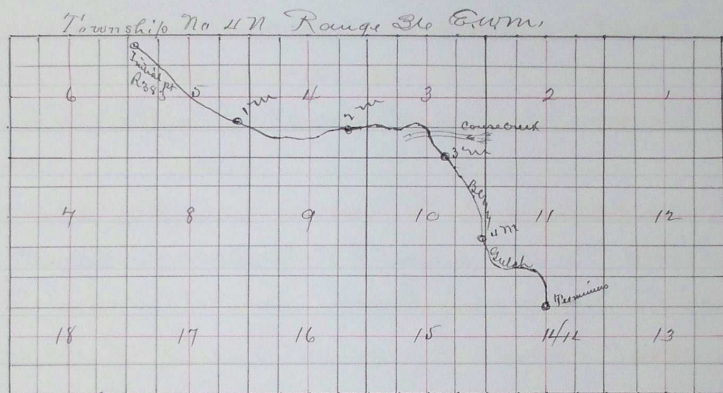 Township No 4N Range 36 E.W.M.
Initial pt
R383
6 5 4 3 2 1
1 m
2 m
Couse creek
3 m
Berry
7 8 9 10 11 12
4 M
Gulch
Terminus
18 17 16 15 14 13